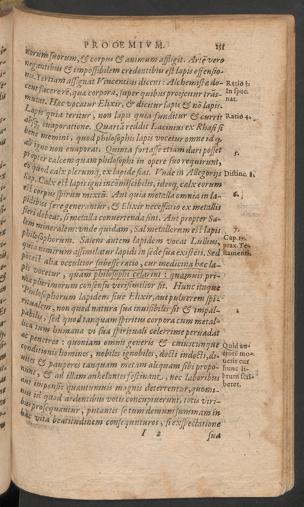 PROOEMIVM. 131
rorum suorum, & corpus & animum affligit. Artē vero
negantibus & impossibilem credentibus est lapis offensio-
nis. Tertiam assignat Vincentius dicens: Alchemistæ do-
cent facere rē, quæ corpora, super quibus projicitur trās-
mutat. Hæc vocatur Elixir, & dicitur lapis & nō lapis.
Lapis quia teritur, non lapis quia funditur & currit
absque evaporatione. Quartā reddit Lacinius ex Rhasi si
bene memini, quod philosophis lapis vocetur omne id, q
ab igne non evaporat. Quinta fortasse etiam dari posset
propter calcem quam philosophi in opere suo requirunt,
& quod calx plerumq; ex lapide fiat. Vnde in Allegoriis
Calx est lapis ignis incomiscibilis, ideoq; calx eorum
est corpus spiritu mixtū. Aut quia metalla omnia in la-
pidibus fere generantur, & Elixir necessario ex metallis
fieri debeat, si metalla convertenda sint. Aut propter Sa-
lem mineralem: unde quidam, Sal metallorum est lapis
philosophorum. Salem autem lapidem vocat Lullius,
quia murum assimilatur lapidi in sede sua existēs. Sed
potest alia occultior subesse ratio, cur medicina hæc la-
pis vocetur, quam philosophi celarint: quamvis pri-
mæ plurimorum consensu verisimilior sit. Hunc itaque
Philosophorum lapidem sive Elixir, aut pulverem spi-
ritualem, non quod natura sua invisibilis sit & impal-
pabilis, sed quod tanquam spiritus corpora cum metal-
lica tum humana vi sua spirituali celerrime pervadat
& penetret: quoniam omnis generis & cuiuscunque
conditionis homines, nobiles ignobiles, docti indocti, di-
vites & pauperes tanquam metam aliquam sibi propo-
nunt, & ad illam anhelantes festinant, nec laboribus
aut impensis quantumvis magnis deterrentur, quomi-
nus id quod ardentibus votis concupiverunt, totis viri-
bus prosequantur, putantes se tum demum summam in
hac vita beatitudinem consequuturos, si expectatione
I 2 sua
Ratio 3.
in spec.
nat.
Ratio 4.
5.
Distinc. 8.
6.
7.
Cap. 19.
prax. Te-
stamenti.
Quid au-